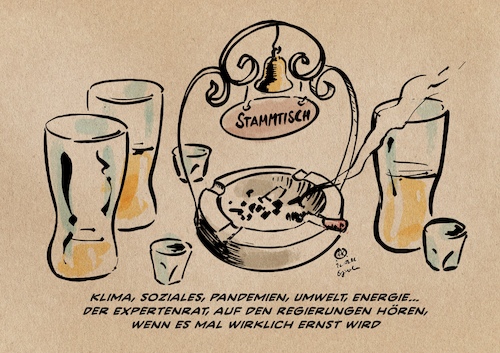 STAMMTISCH
KLIMA, SOZIALES, PANDEMIEN, UMWELT, ENERGIE...
DER EXPERTENRAT, AUF DEN REGIERUNGEN HÖREN,
WENN ES MAL WIRKLICH ERNST WIRD